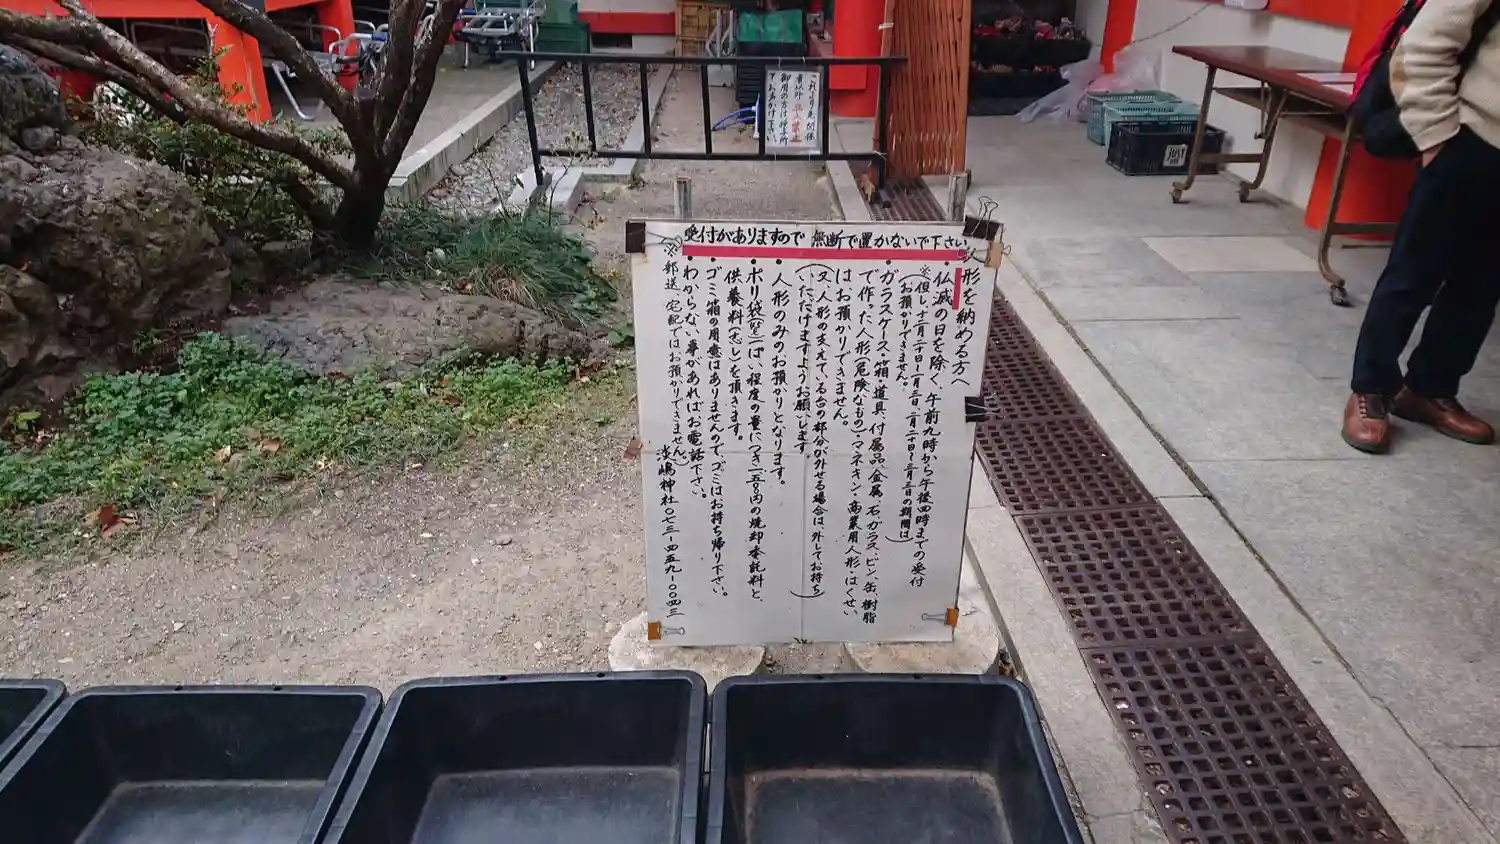 受付がありますので 無断で置かないで下さい
人形を納める方へ
・仏滅の日を除く、午前九時から午後四時までの受付
(※但し、十二月二十日〜一月三日、二月二十日〜三月三日の期間は
お預かりできません。)
・ガラスケース・箱・道具、付属品、金属、石、ガラス、ビン、缶、樹脂
で作った人形(危険なもの)・マネキン・商業用人形・はくせい
はお預かりできません。
(又、人形の支えている台の部分が外せる場合は、外してお持ち
いただけますようお願いします)
・人形のみのお預かりとなります。
・ポリ袋(竪)一ぱい程度の量につき二五〇円の焼却委託料と、
供養料(志し)を頂きます。
・ゴミ箱の用意はありませんので、ゴミはお持ち帰り下さい。
・わからない事があればお電話下さい。
(※郵送、宅配ではお預かりできません。)
淡嶋神社 〇七三-四五九-〇〇四三
これより先関係
者以外立入禁止
御用の方は授与所
でお声かけ下さい。
JUST